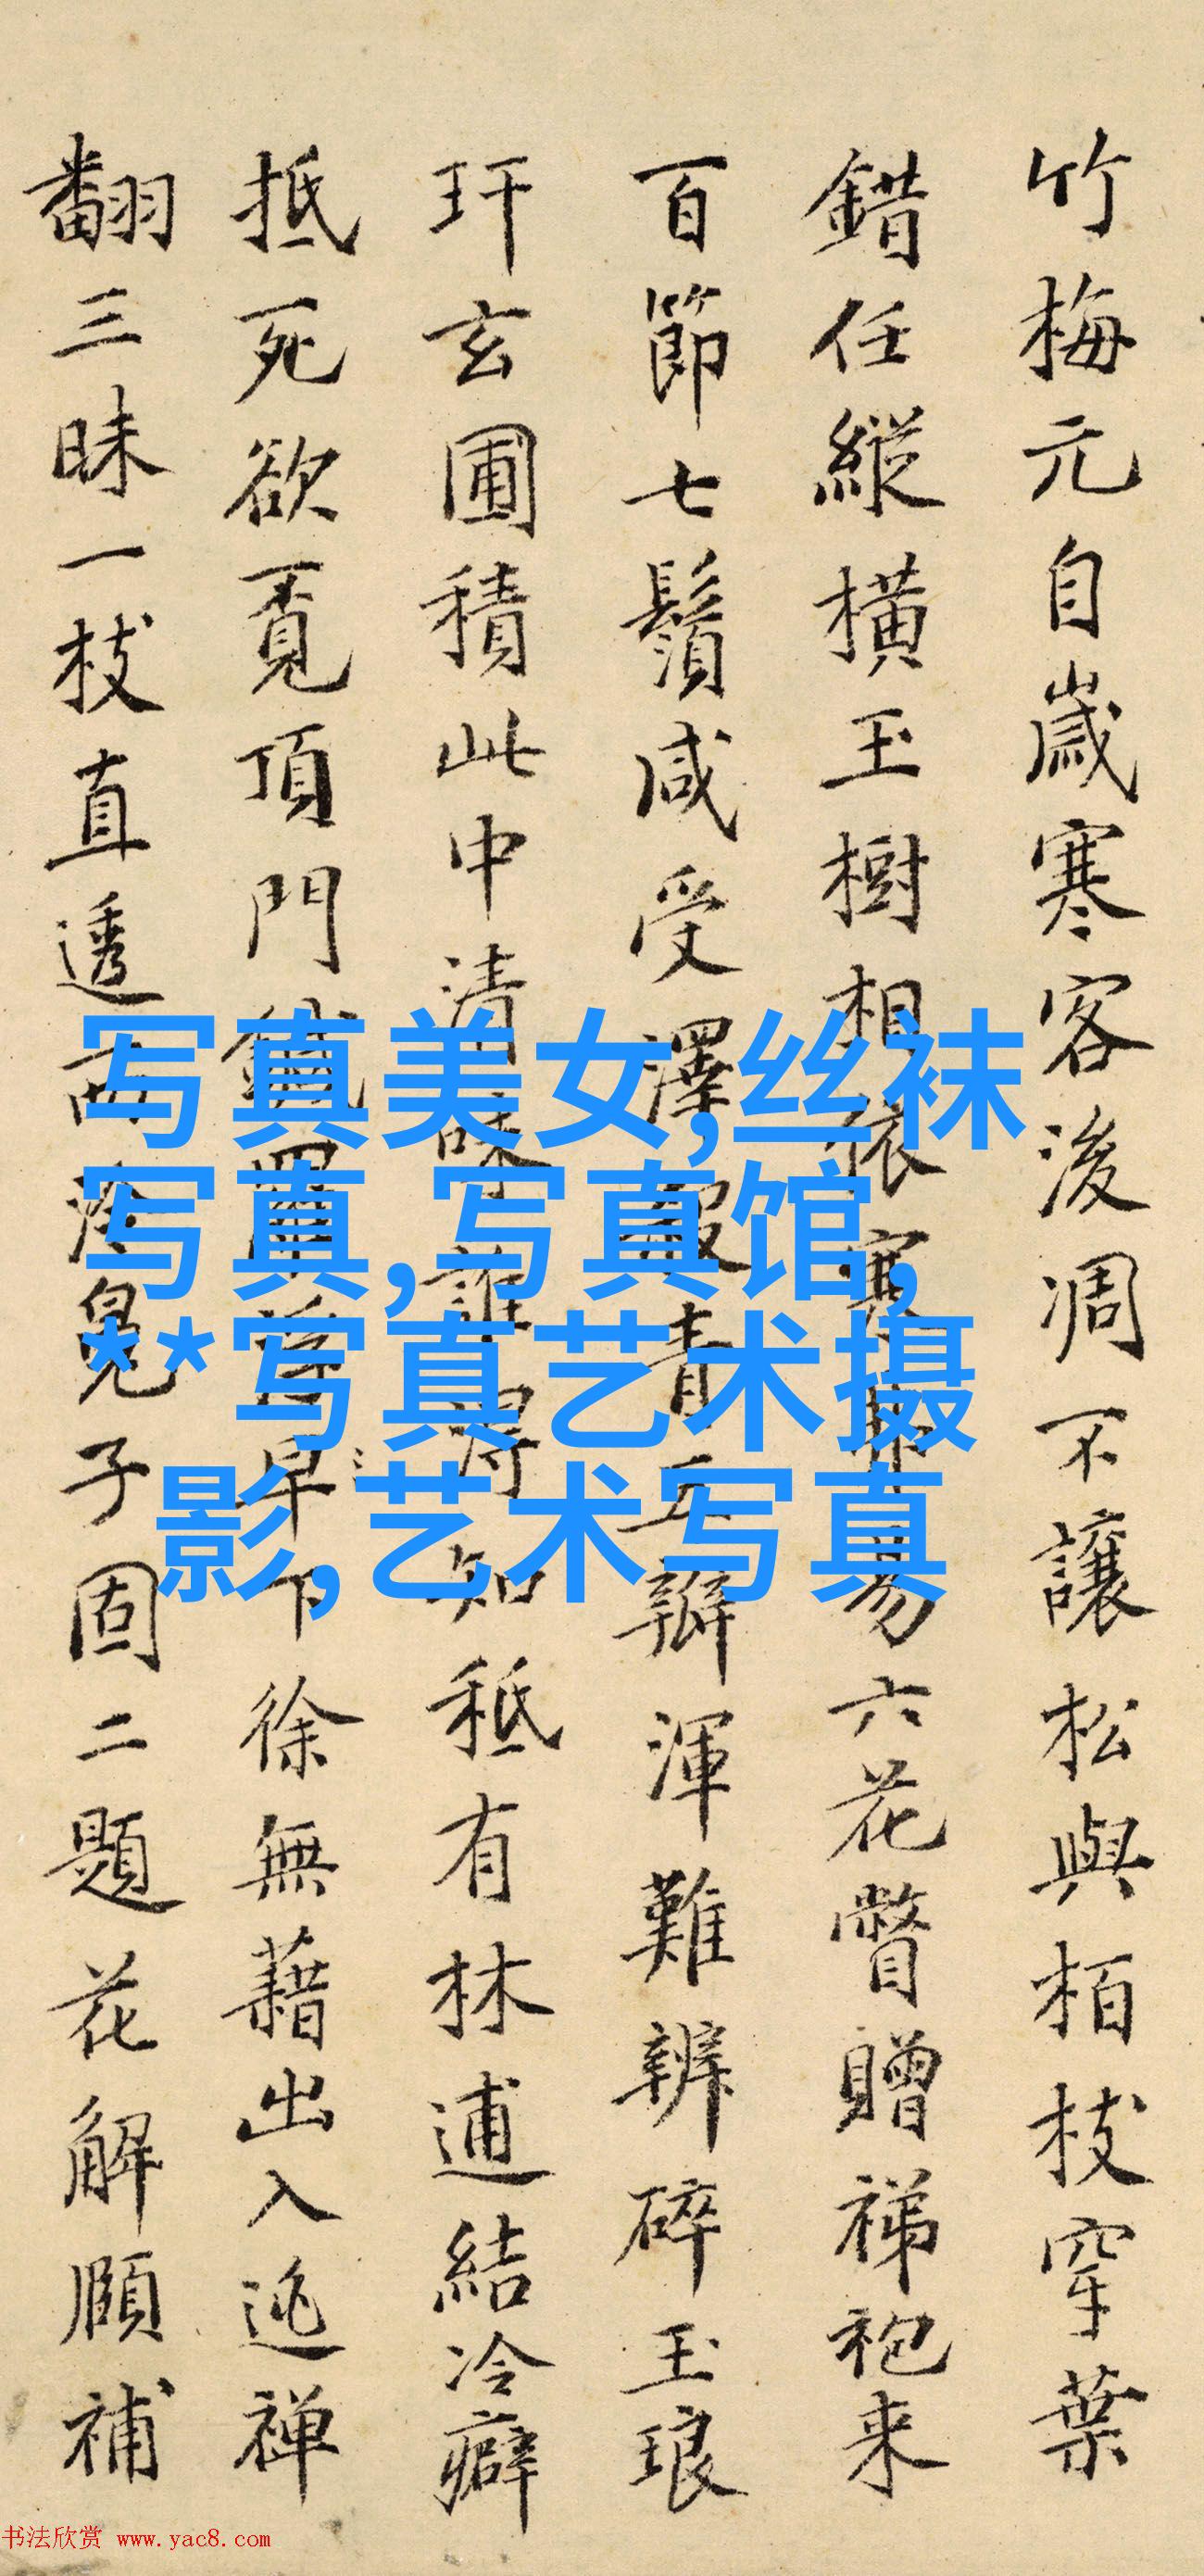 竹梅元自歲寒客後凋不讓松與栢枝穿葉
錯任縱橫玉樹相依寒 易六花瞥贈祶袍来
百節七鬚咸受澤 青五瓣渾難辨碎玉琅
玕玄圃積此中清味誰得知秪有林逋結冷癖
抵死欲覔頂門 早下徐無藉出入逃禅
翻三昧一枝直透 子固二題花解頤補
写真美女,丝袜
写真,写真馆,
**写真艺术摄
影,艺术写真
书法欣赏 www.yac8.com